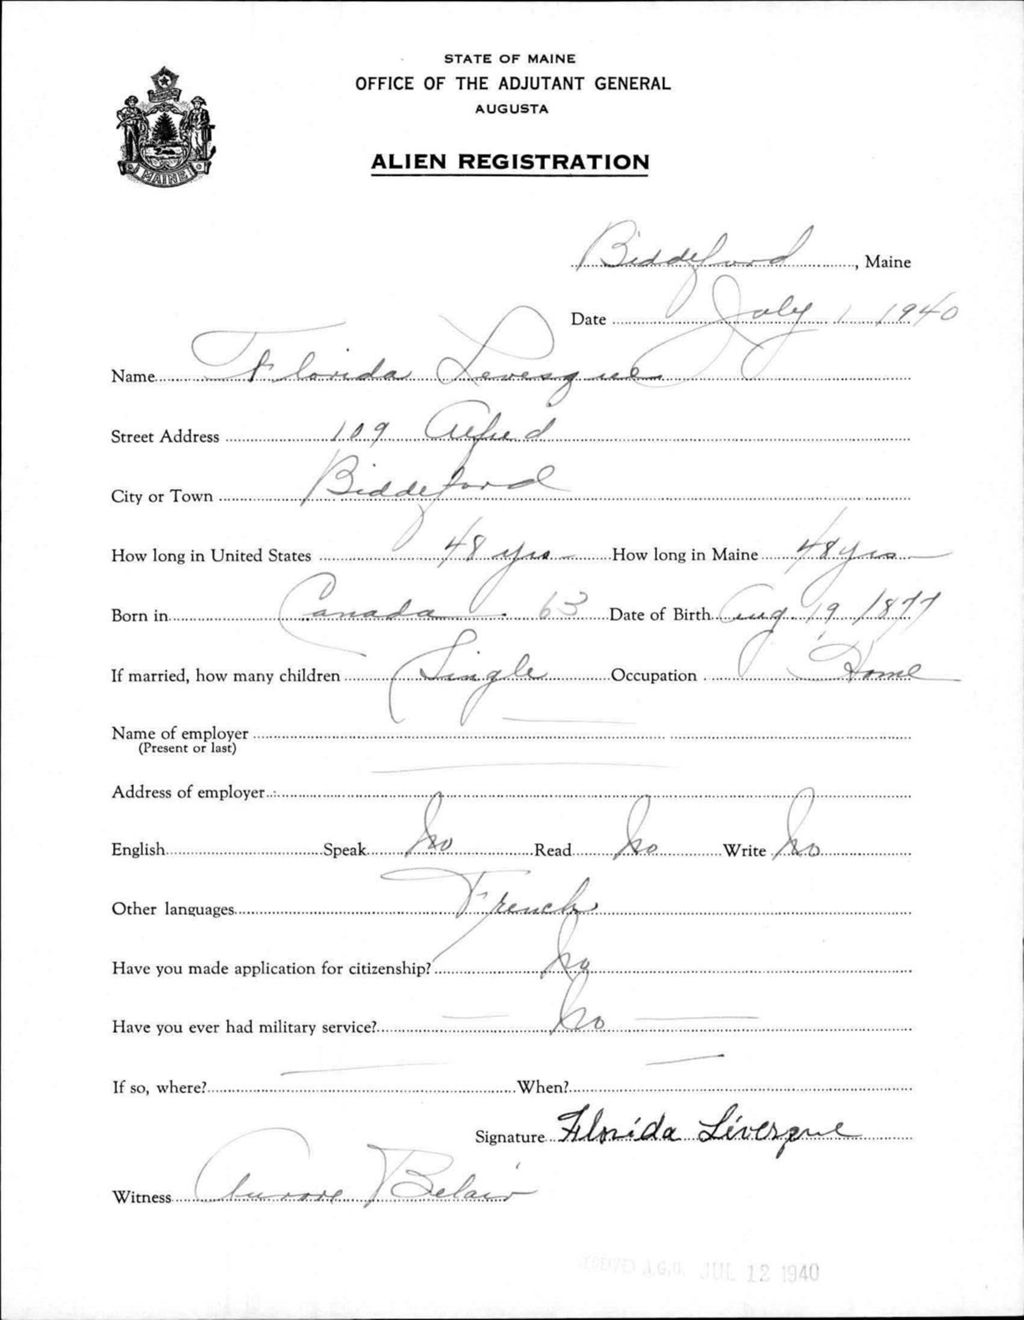 STATE OF MAINE
OFFICE OF THE ADJUTANT GENERAL
AUGUSTA
MAINE
ALIEN REGISTRATION
Biddeford, Maine
Date July 1, 1940
Name Florida Levesque
Street Address 109 Alfred
City or Town Biddeford
How long in United States 48 yrs How long in Maine 48 yrs
Born in Canada. 63 Date of Birth Aug 19, 1877
If married, how many children Single Occupation Home
Name of employer
(Present or last)
Address of employer
English Speak No Read No Write No
Other languages French
Have you made application for citizenship? No
Have you ever had military service? — No —
If so, where? — When? —
Signature Florida Lévesque
Witness Aurore Belair
RECEIVED A.G.O. JUL 12 1940